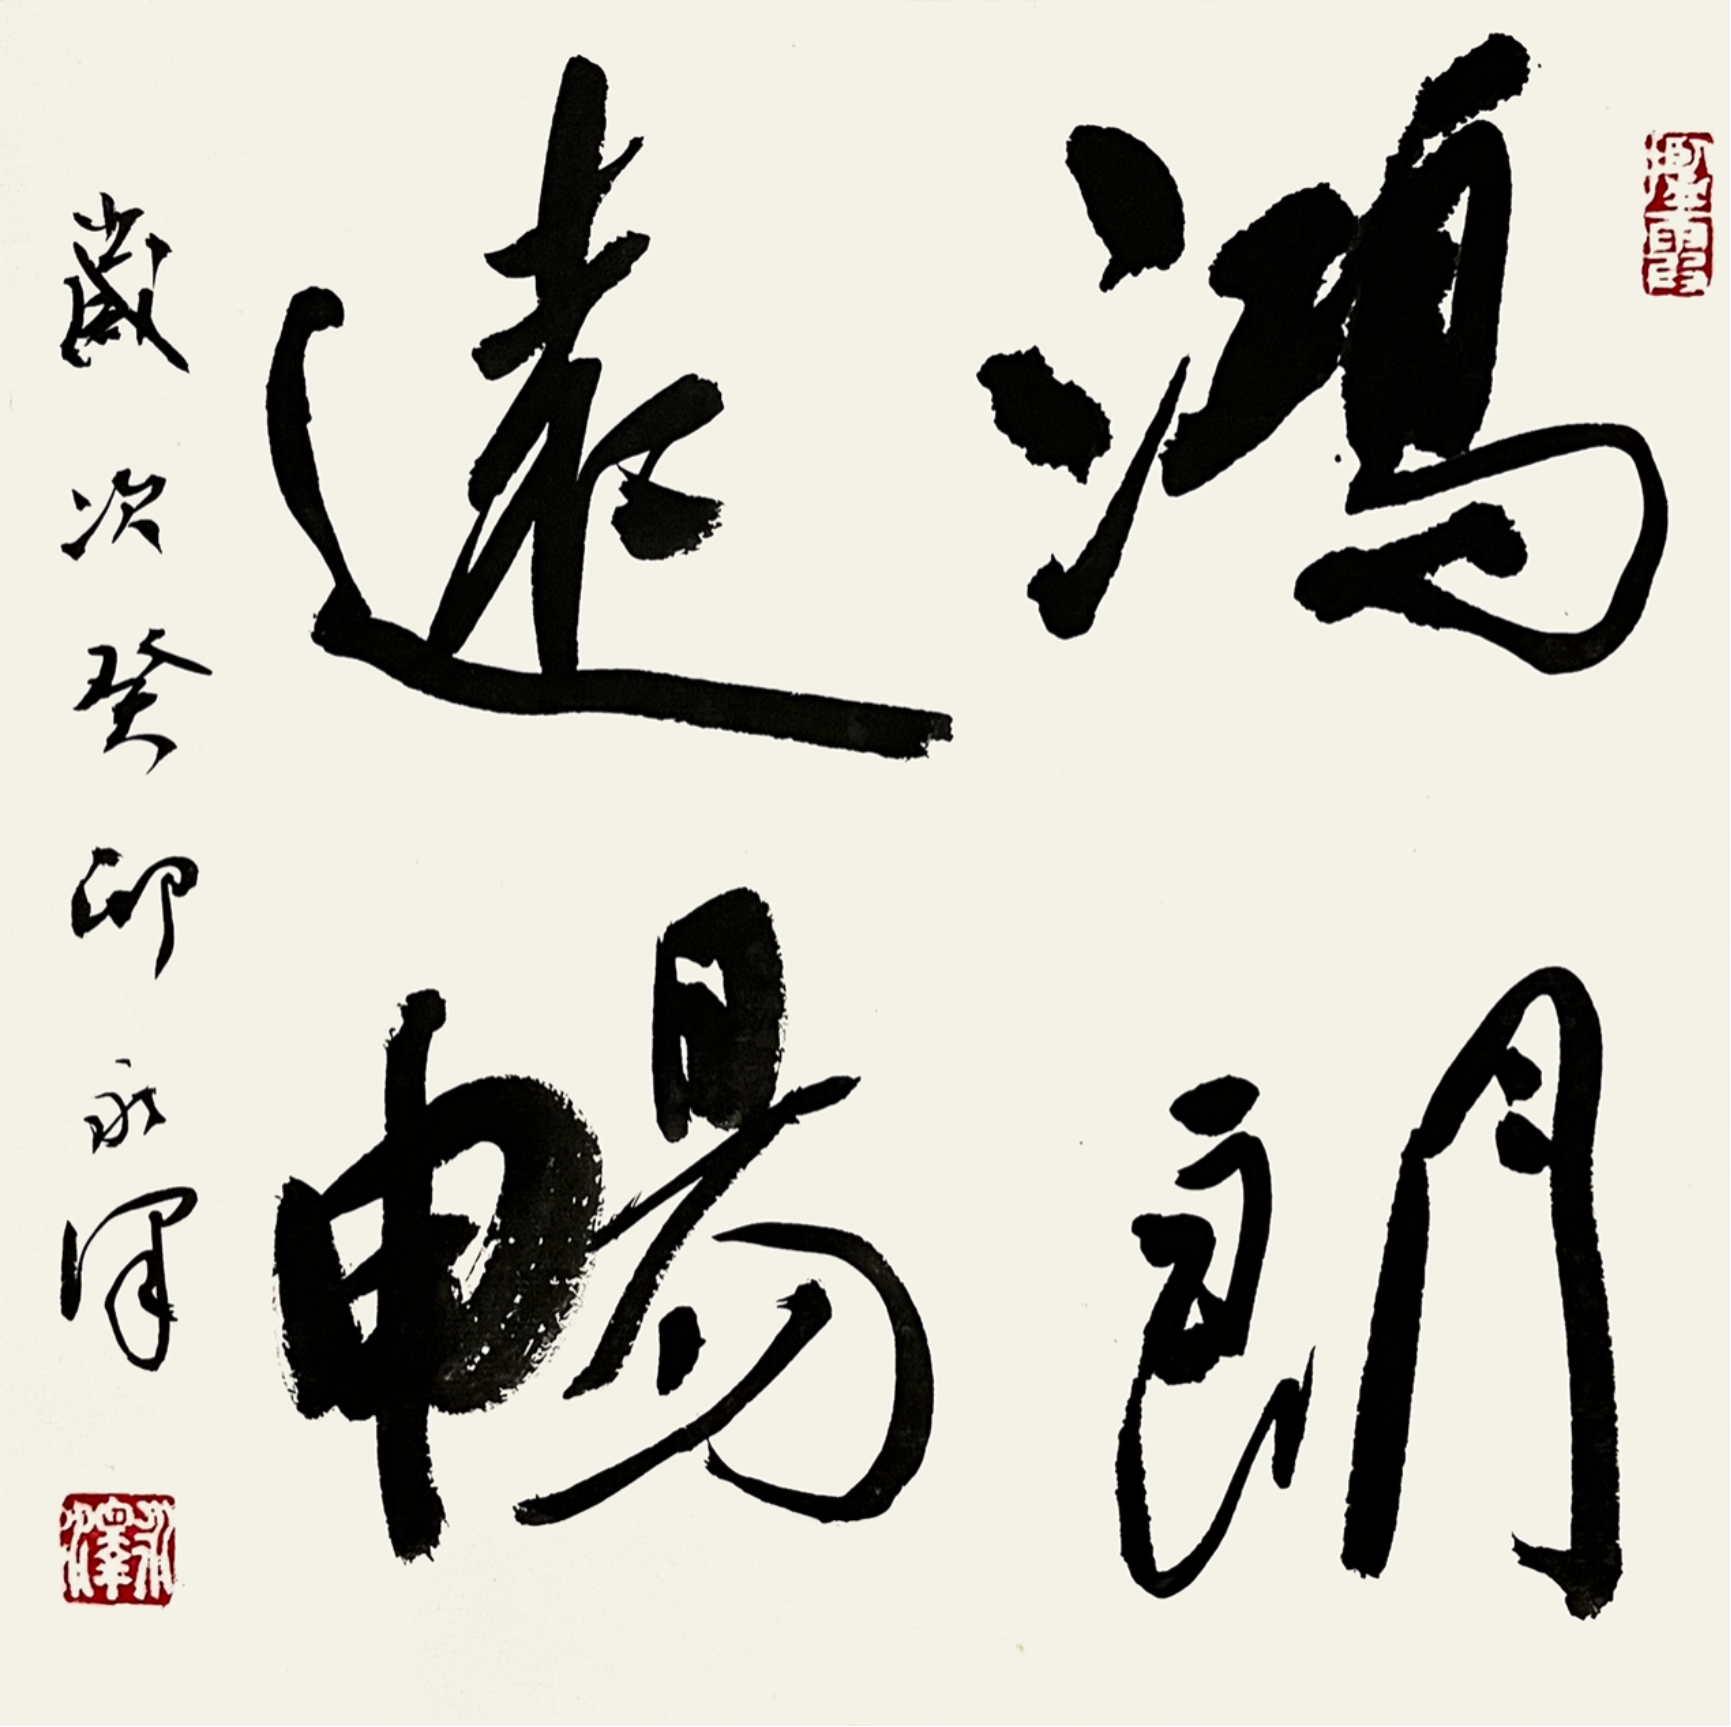 鴻朗
遠暢
歲次癸卯永澤
永澤